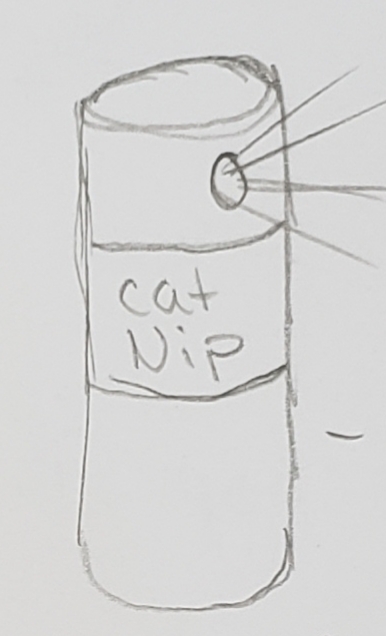 cat
Nip